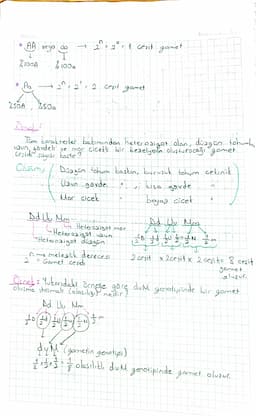 * AA veya aa → 2ⁿ = 2⁰ = 1 çeşit gamet
%100A %100a
* Aa → 2ⁿ = 2¹ = 2 çeşit gamet
%50A %50a
Örnek:
Tüm karakterler bakımından heterozigot olan, düzgün tohumlu
uzun gövdeli ve mor çiçekli bir bezelyenin oluşturacağı gamet
çeşidi sayısı kaçtır?
Çözüm:
Düzgün tohum baskın, buruşuk tohum çekinik
Uzun gövde " , kısa gövde "
Mor çiçek " beyaz çiçek "
Dd Uu Mm
Heterozigot mor
Heterozigot uzun
Heterozigot düzgün
Dd Uu Mm
½D ½d ½U ½u ½M ½m
n = melezlik derecesi
2ⁿ = Gamet çeşidi
2 çeşit x 2 çeşit x 2 çeşit = 8 çeşit
gamet
oluşur.
Örnek: Yukarıdaki örneğe göre duM genotipinde bir gamet
oluşma ihtimali (olasılığı) nedir?
Dd Uu Mm
½D ½d ½U ½u ½M ½m
d u M (gametin genotipi)
½ x ½ x ½ = 1/8 olasılıkla duM genotipinde gamet oluşur.